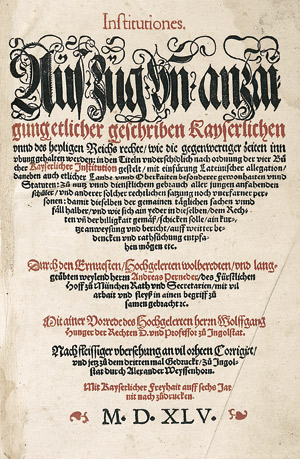 Institutiones.
Auszug vñ anzai
gung etlicher geschriben Kayserlichen
vnnd des heyligen Reichs rechte / wie die gegenwertiger zeiten inn
vbung gehalten werden: in den Titeln vnderschidlich nach ordnung der vier Bü
cher Kayserlicher Institution gestelt / mit einfürung Lateinischer allegation /
daneben auch etlicher Lande vnnd Oberkaiten besonderer gewonhaiten vnnd
Statuten: Zů nutz vnnd dienstlichem gebrauch aller jungen anfahenden
schüler / vnd anderer solcher rechtlichen satzung noch vnerfarner per
sonen: damit dieselben der gemainen täglichen sachen vnnd
fäll halber / vnd wie sich am yeder in dieselben / dem Rech
ten vñ der billigkait gemäß / schicken solle / ain kur
tze anweysung vnd bericht / auff weitter be
dencken vnd rathsůchung entpfa
hen mögen etc.
Durch den Ernuesten / Hochgelerten wolberedten / vnd lang
geübten weylend herrn Andreas Perneder / des Fürstlichen
Hoff zů München Rath vnd Secretarien / mit vil
arbait vnd fleyß in ainen begriff zů
samen gebracht etc.
Mit ainer Vorrede des Hochgelerten herrn Wolffgang
Hunger der Rechten D. vnd Professor zů Ingolstat.
Nach fleissiger vbersehung an vil orhten Corrigirt /
vnd jetz zů dem dritten mal Gedruckt / zů Ingol
stat durch Alexander Weyssenhorn.
Mit Kayserlicher Freyhait auff sechs Jar
nit nach zůdrucken.
M. D. XLV.